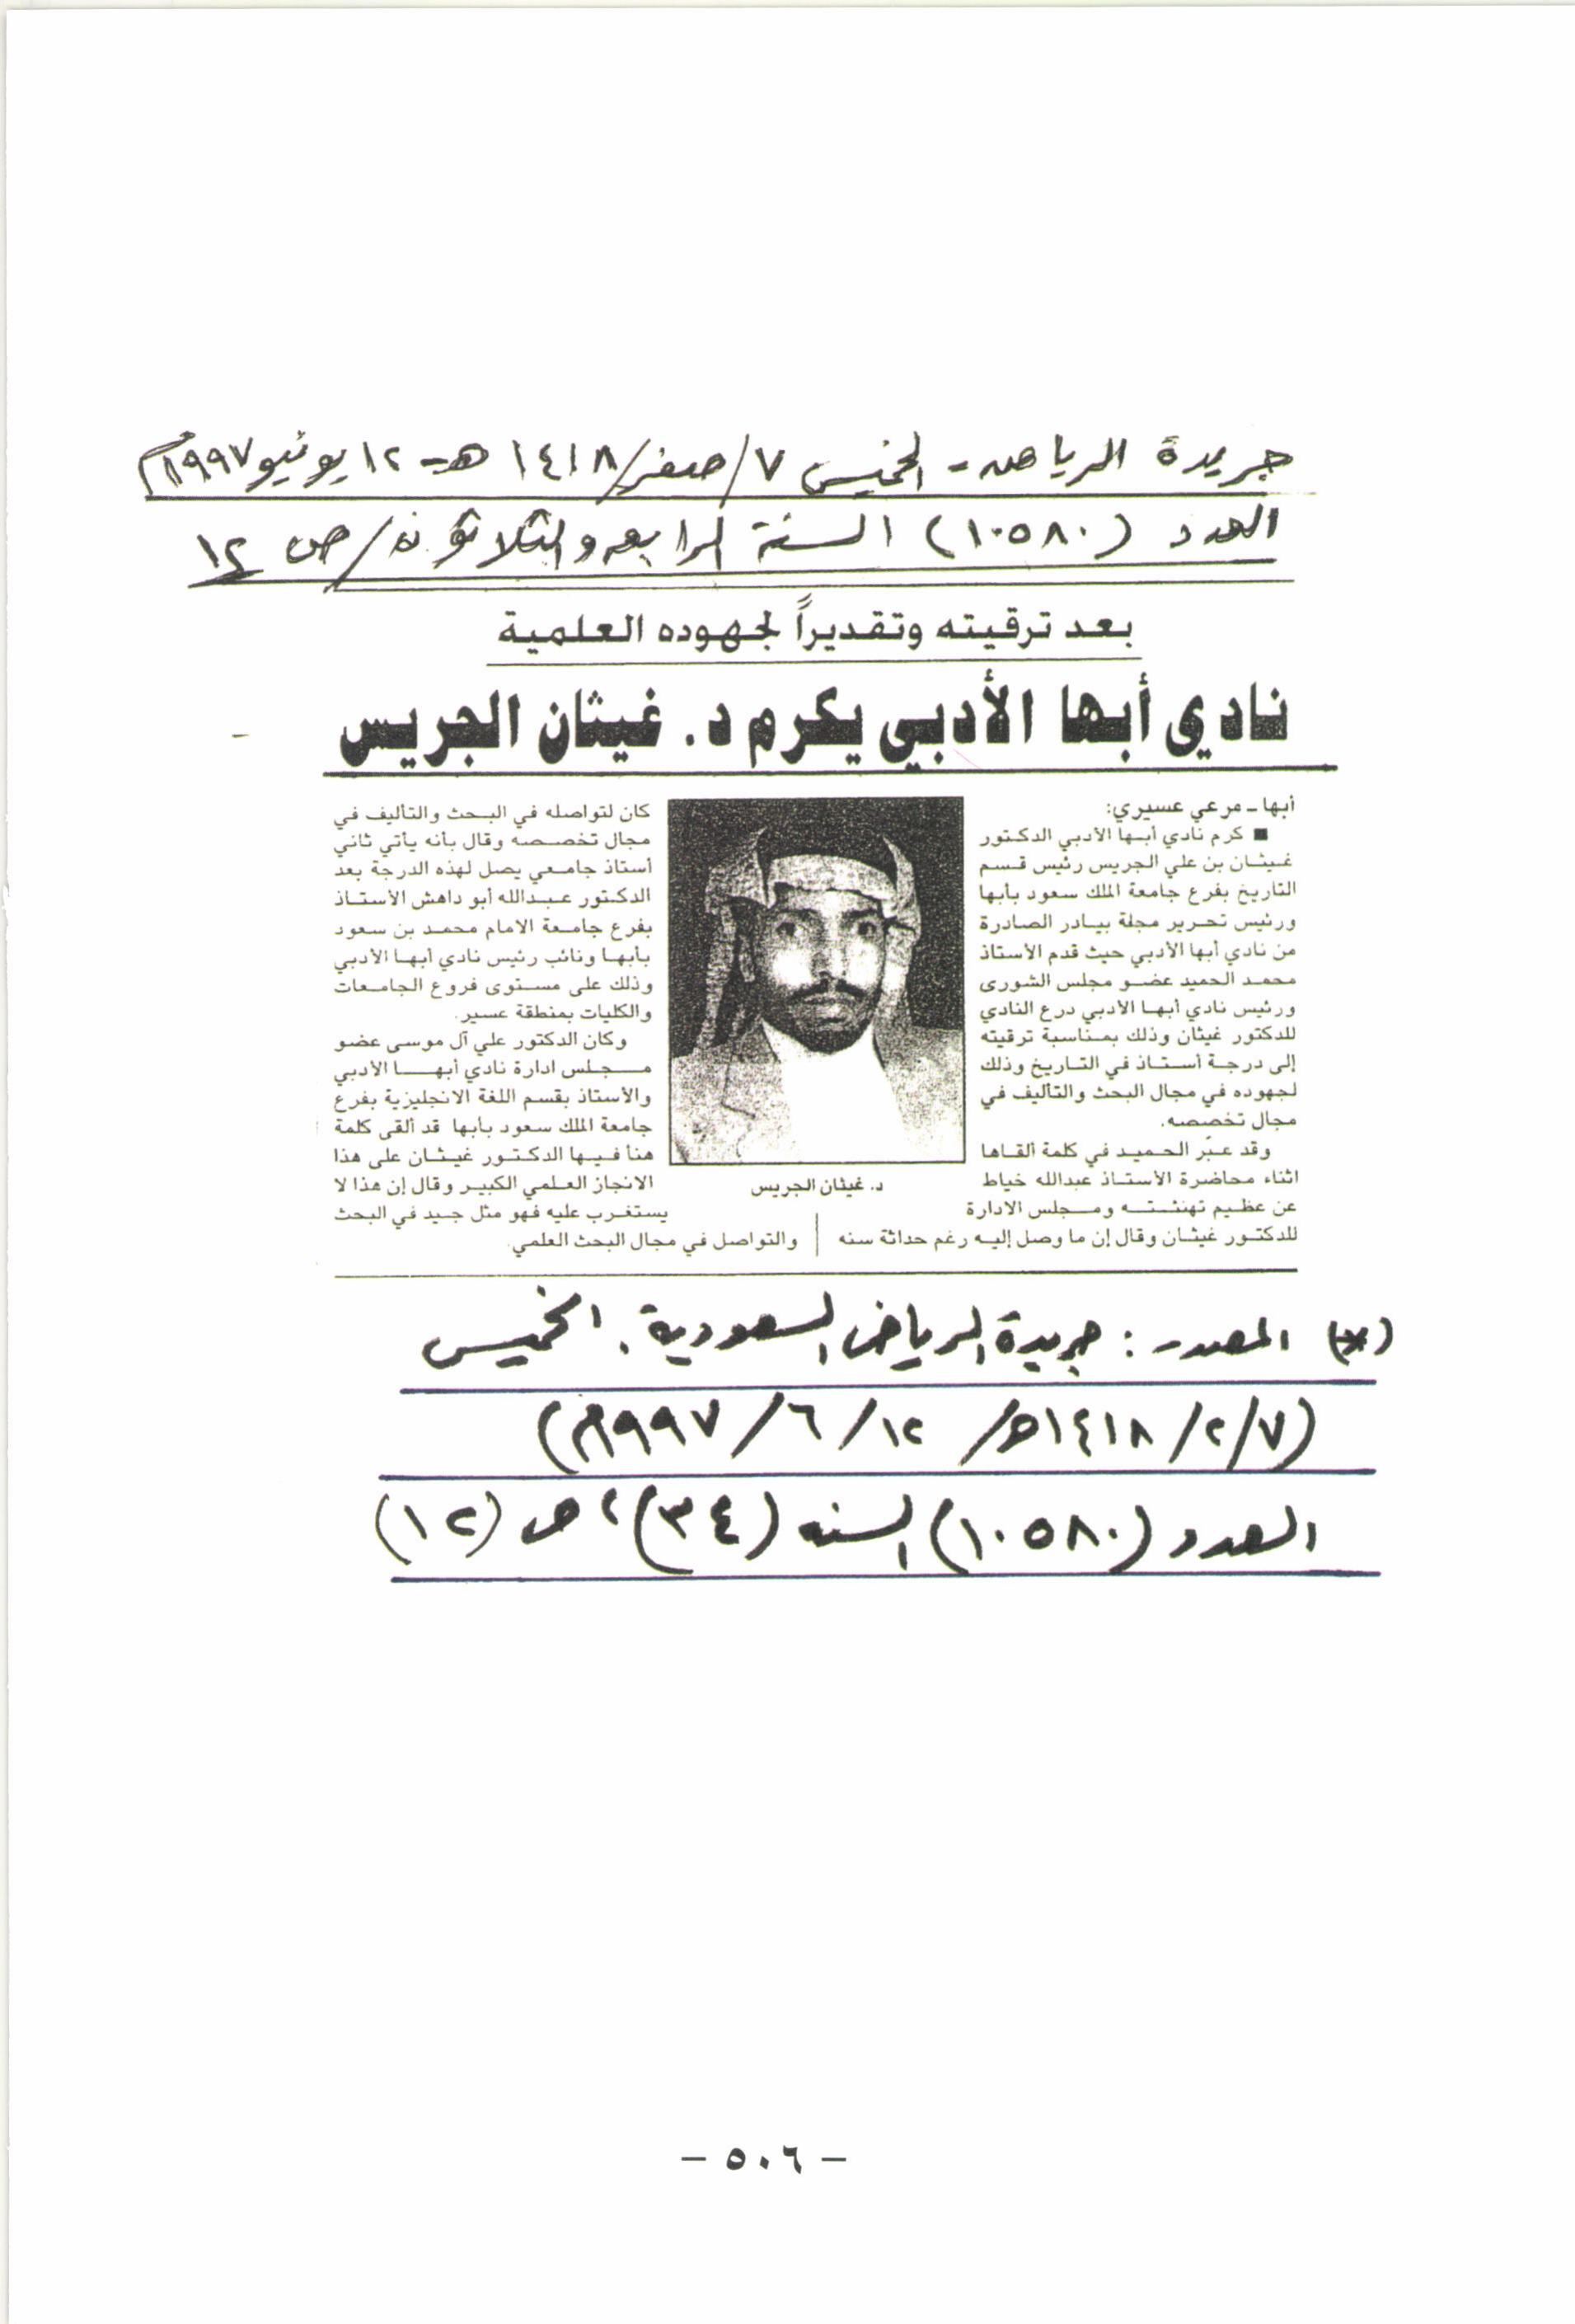 جريدة الرياض - الخميس ٧/صفر/١٤١٨ هـ - ١٢ يونيو ١٩٩٧م
العدد (١٠٥٨٠) السنة الرابعة والثلاثون/ص ١٢
بعد ترقيته وتقديراً لجهوده العلمية
نادي أبها الأدبي يكرم د. غيثان الجريس
أبها ـ مرعي عسيري:
■ كرم نادي أبها الأدبي الدكتور
غيثان بن علي الجريس رئيس قسم
التاريخ بفرع جامعة الملك سعود بأبها
ورئيس تحرير مجلة بيادر الصادرة
من نادي أبها الأدبي حيث قدم الأستاذ
محمد الحميد عضو مجلس الشورى
ورئيس نادي أبها الأدبي درع النادي
للدكتور غيثان وذلك بمناسبة ترقيته
إلى درجة أستاذ في التاريخ وذلك
لجهوده في مجال البحث والتأليف في
مجال تخصصه.
وقد عبّر الحميد في كلمة ألقاها
اثناء محاضرة الأستاذ عبدالله خياط
عن عظيم تهنئته ومجلس الادارة
للدكتور غيثان وقال إن ما وصل إليه رغم حداثة سنه
كان لتواصله في البحث والتأليف في
مجال تخصصه وقال بأنه يأتي ثاني
أستاذ جامعي يصل لهذه الدرجة بعد
الدكتور عبدالله أبو داهش الأستاذ
بفرع جامعة الامام محمد بن سعود
بأبها ونائب رئيس نادي أبها الأدبي
وذلك على مستوى فروع الجامعات
والكليات بمنطقة عسير.
وكان الدكتور علي آل موسى عضو
مجلس ادارة نادي أبها الأدبي
والأستاذ بقسم اللغة الانجليزية بفرع
جامعة الملك سعود بأبها قد ألقى كلمة
هنأ فيها الدكتور غيثان على هذا
الانجاز العلمي الكبير وقال إن هذا لا
يستغرب عليه فهو مثل جيد في البحث
والتواصل في مجال البحث العلمي.
د. غيثان الجريس
(*) المصدر : جريدة الرياض السعودية . الخميس
(٧/٢/١٤١٨هـ/ ١٢/٦/١٩٩٧م)
العدد (١٠٥٨٠) السنه (٣٤)، ص (١٢)
- ٥٠٦ -